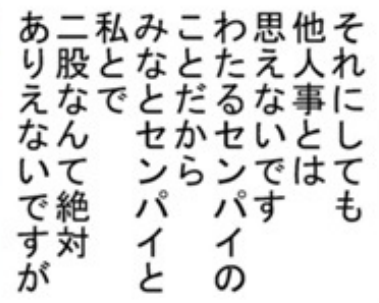 それにしても
他人事とは
思えないです
わたるセンパイの
ことだから
みなとセンパイと
私とで
二股なんて絶対
ありえないですが